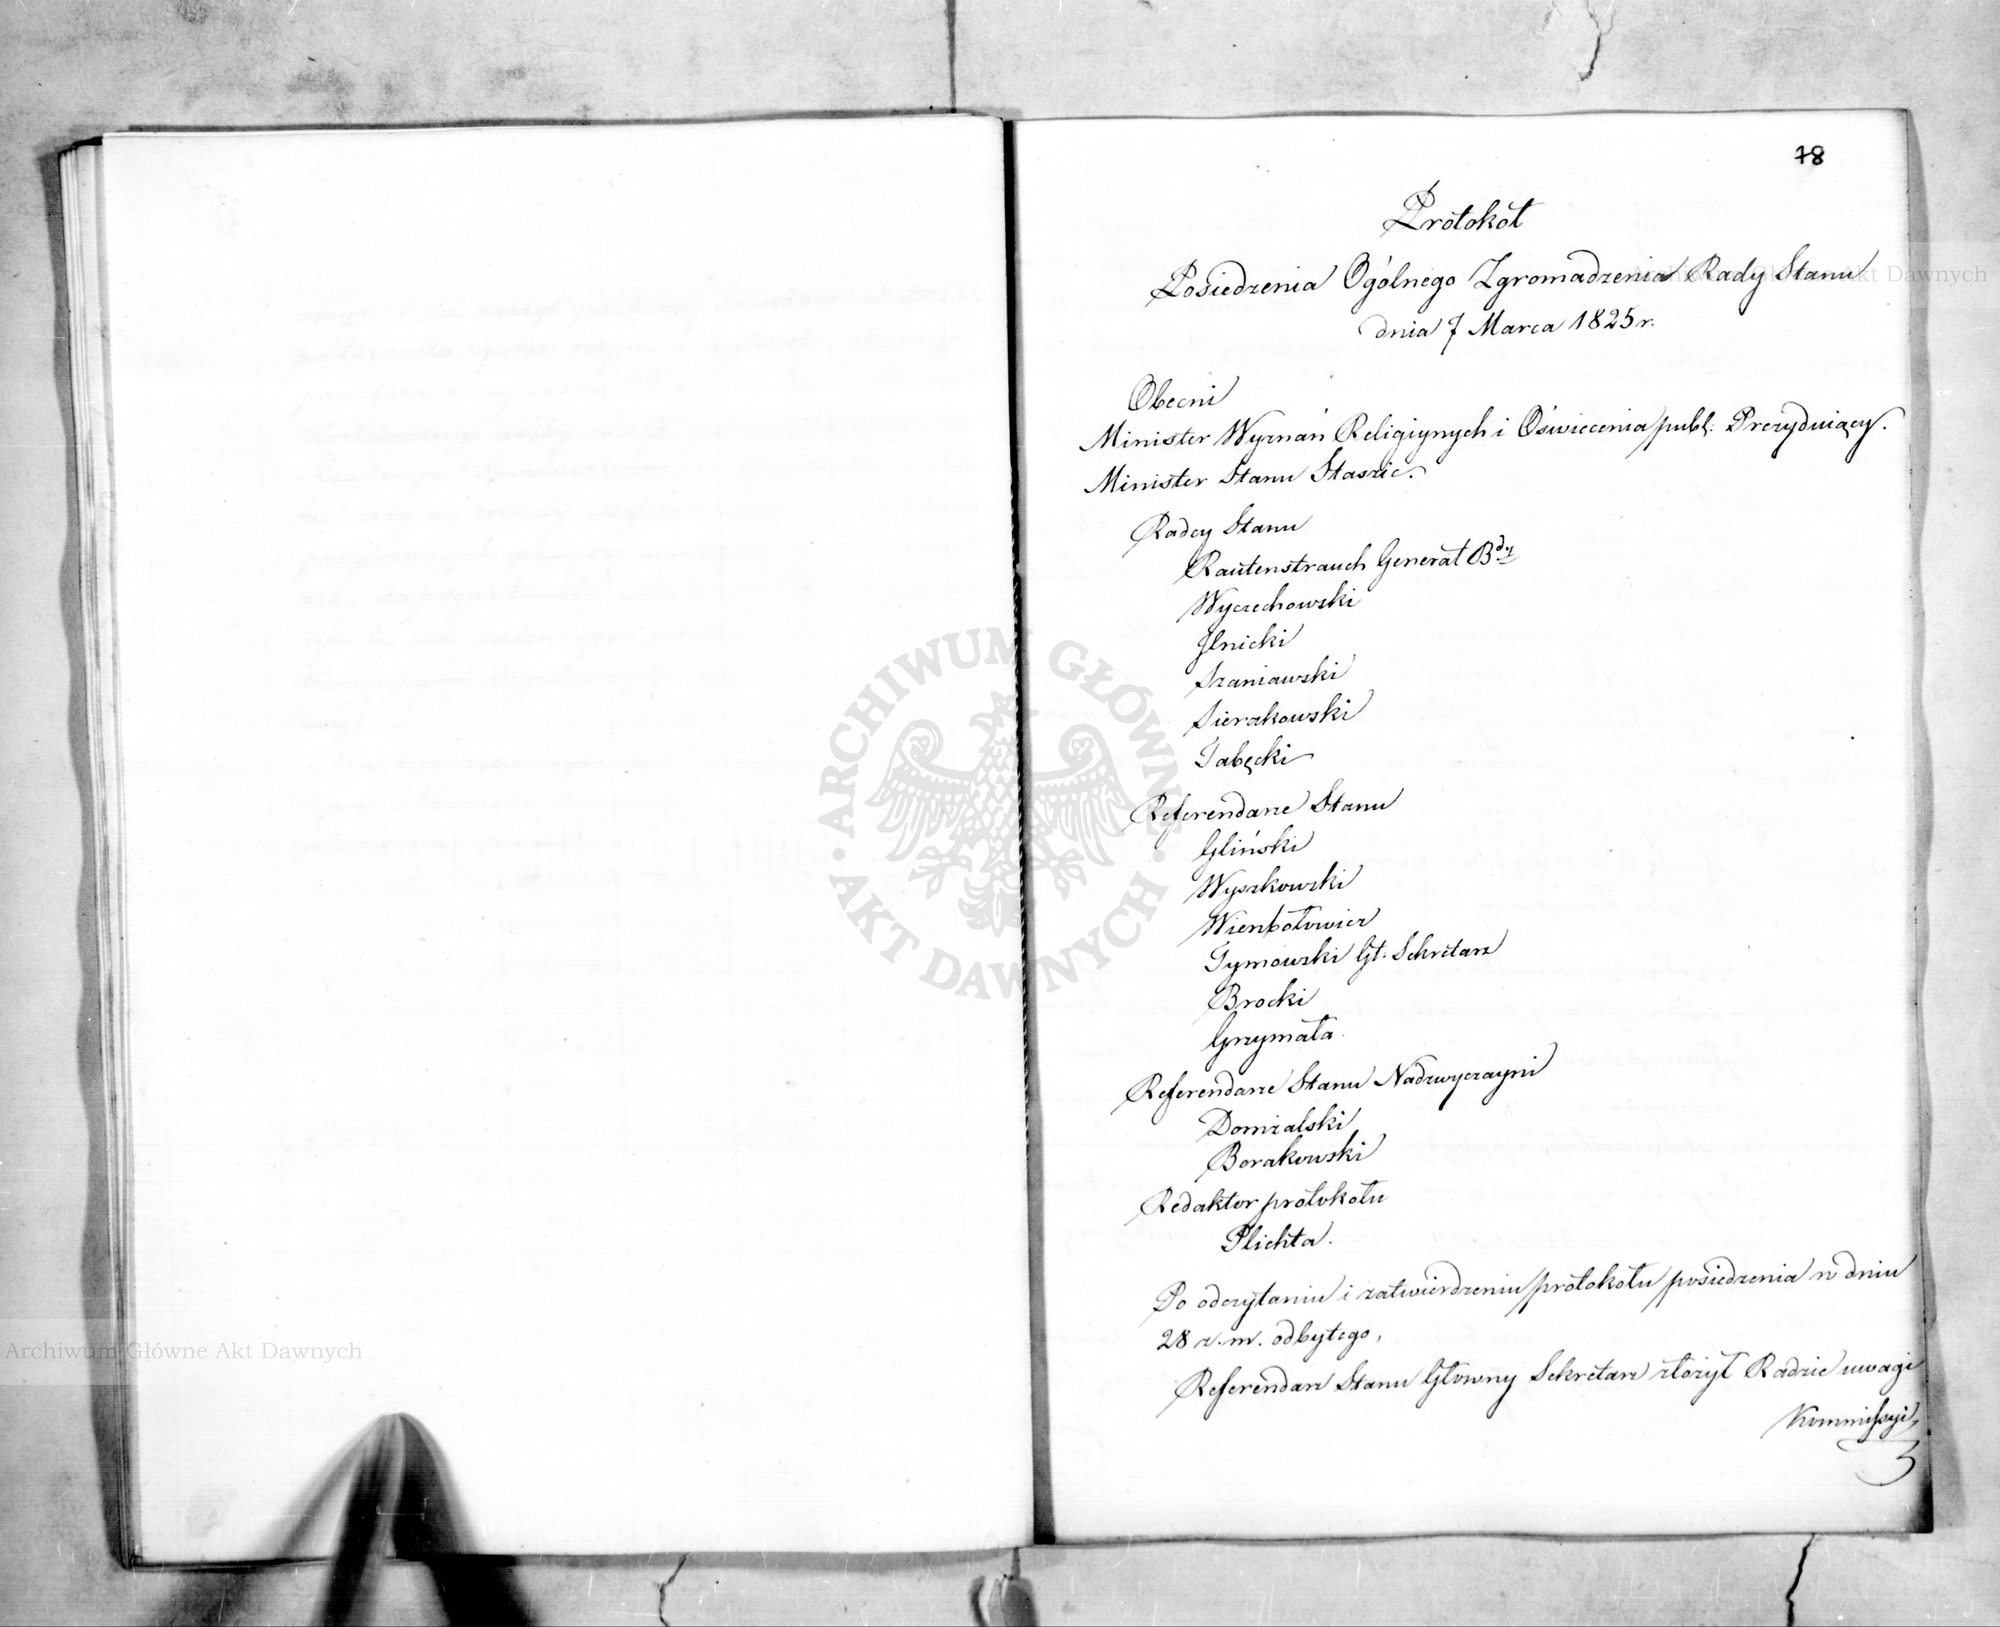 78
Protokół
Posiedzenia Ogólnego Zgromadzenia Rady Stanu
dnia 7 Marca 1825 r.
Obecni
Minister Wyznań Religiynych i Oświecenia publ: Prezyduiący.
Minister Stanu Staszic.
Radcy Stanu
Rautenstrauch Generał Bdy
Wyczechowski
Jlnicki
Szaniawski
Sierakowski
Tabęcki
Referendarze Stanu
Gliński
Wyszkowski
Tymowski Gł. Sekretarz
Brocki
Grzymała
Referendarze Stanu Nadzwyczayni
Domżalski
Borakowski
Redaktor protokołu
Plichta.
Po odczytaniu i zatwierdzeniu protokołu posiedzenia w dniu
28 z. m. odbytego,
Referendarz Stanu Głowny Sekretarz złożył Radzie uwagi
Kommissyi
ARCHIWUM GŁÓWNE · AKT DAWNYCH ·
Archiwum Główne Akt Dawnych
Archiwum Główne Akt Dawnych